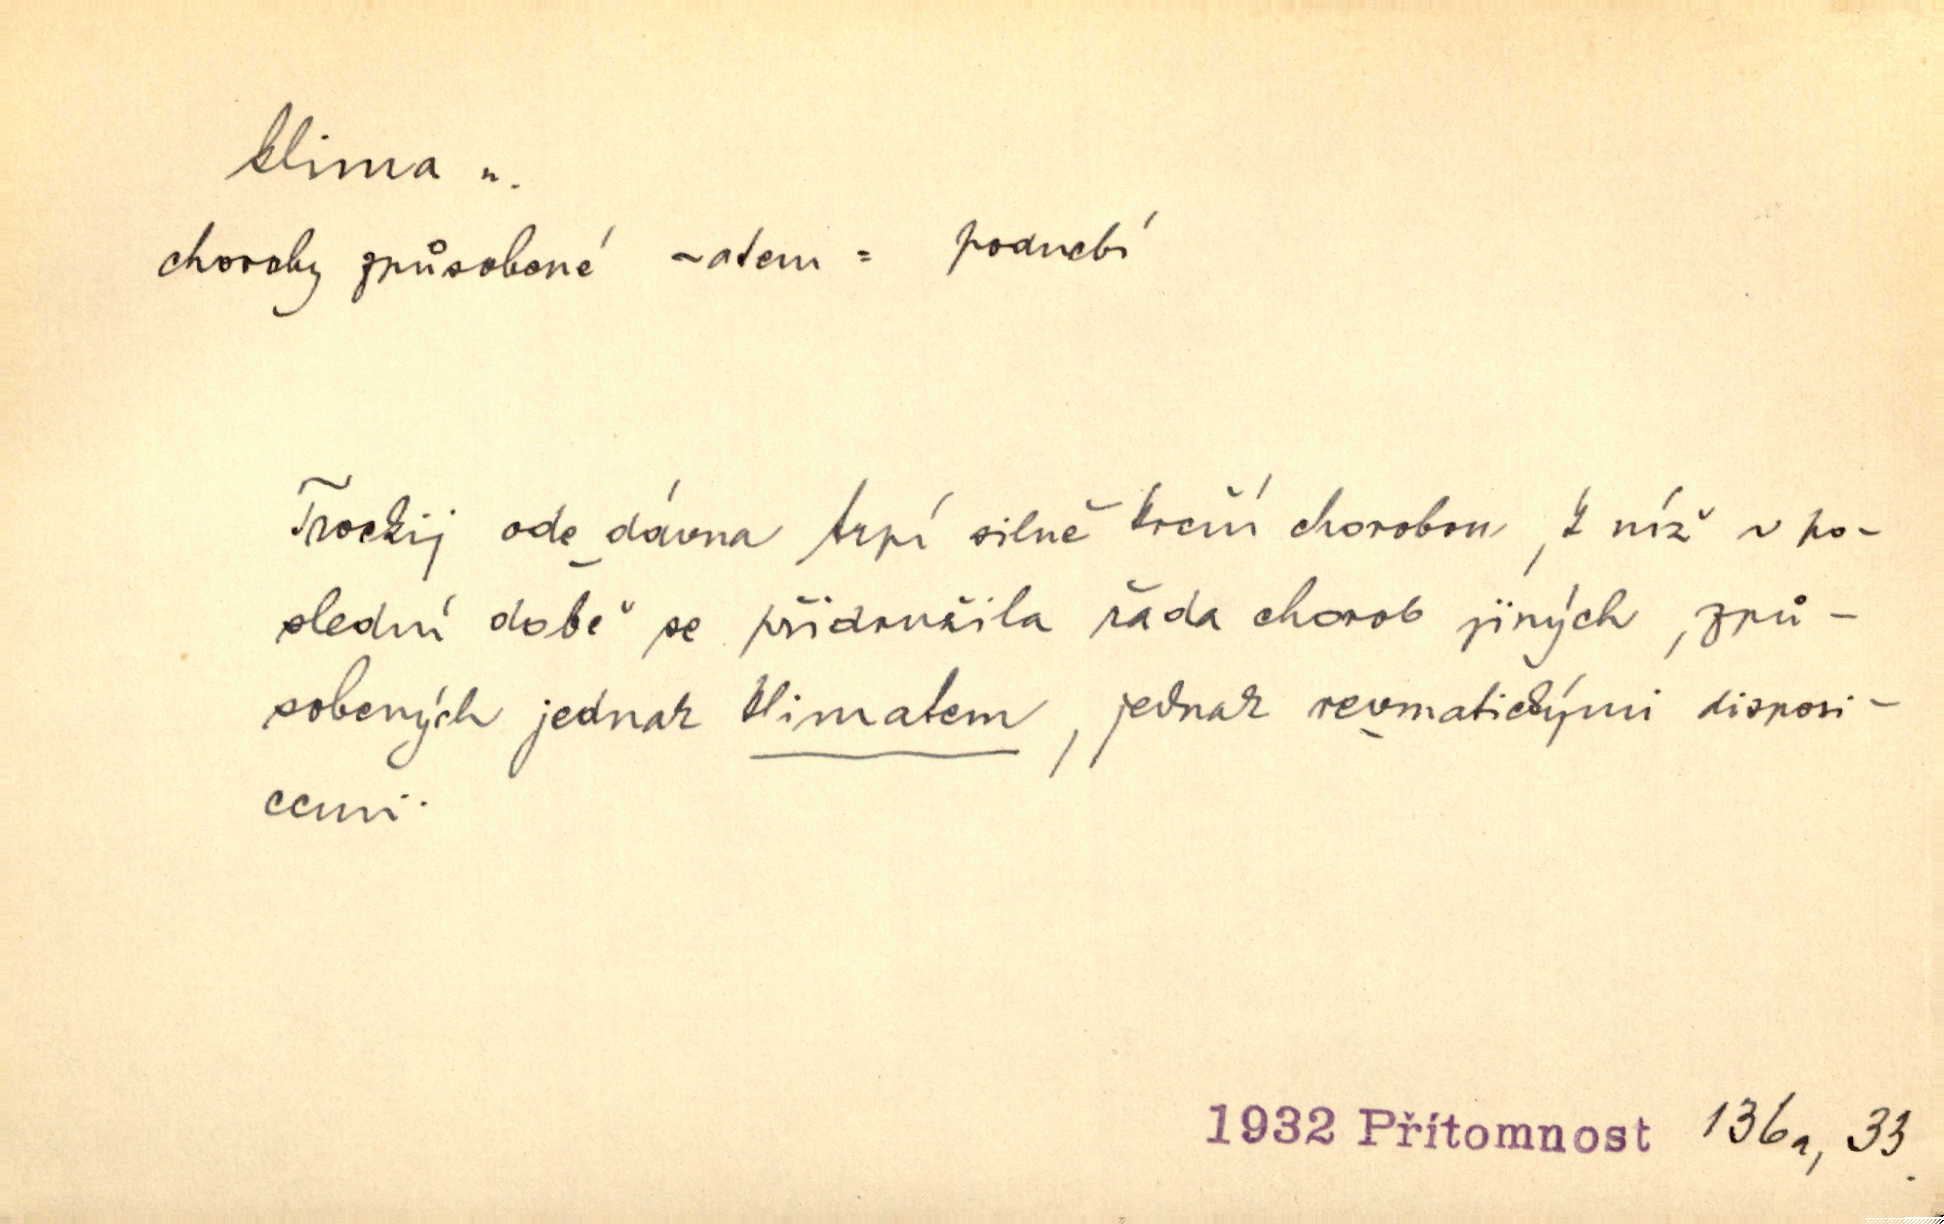 klima n.
choroby způsobené ~atem = podnebí
Trockij ode dávna trpí silně krční chorobou, k níž v po-
slední době se přidružila řada chorob jiných, způ-
sobených jednak klimatem, jednak revmatickými disposi-
cemi.
1932 Přítomnost 136a, 33